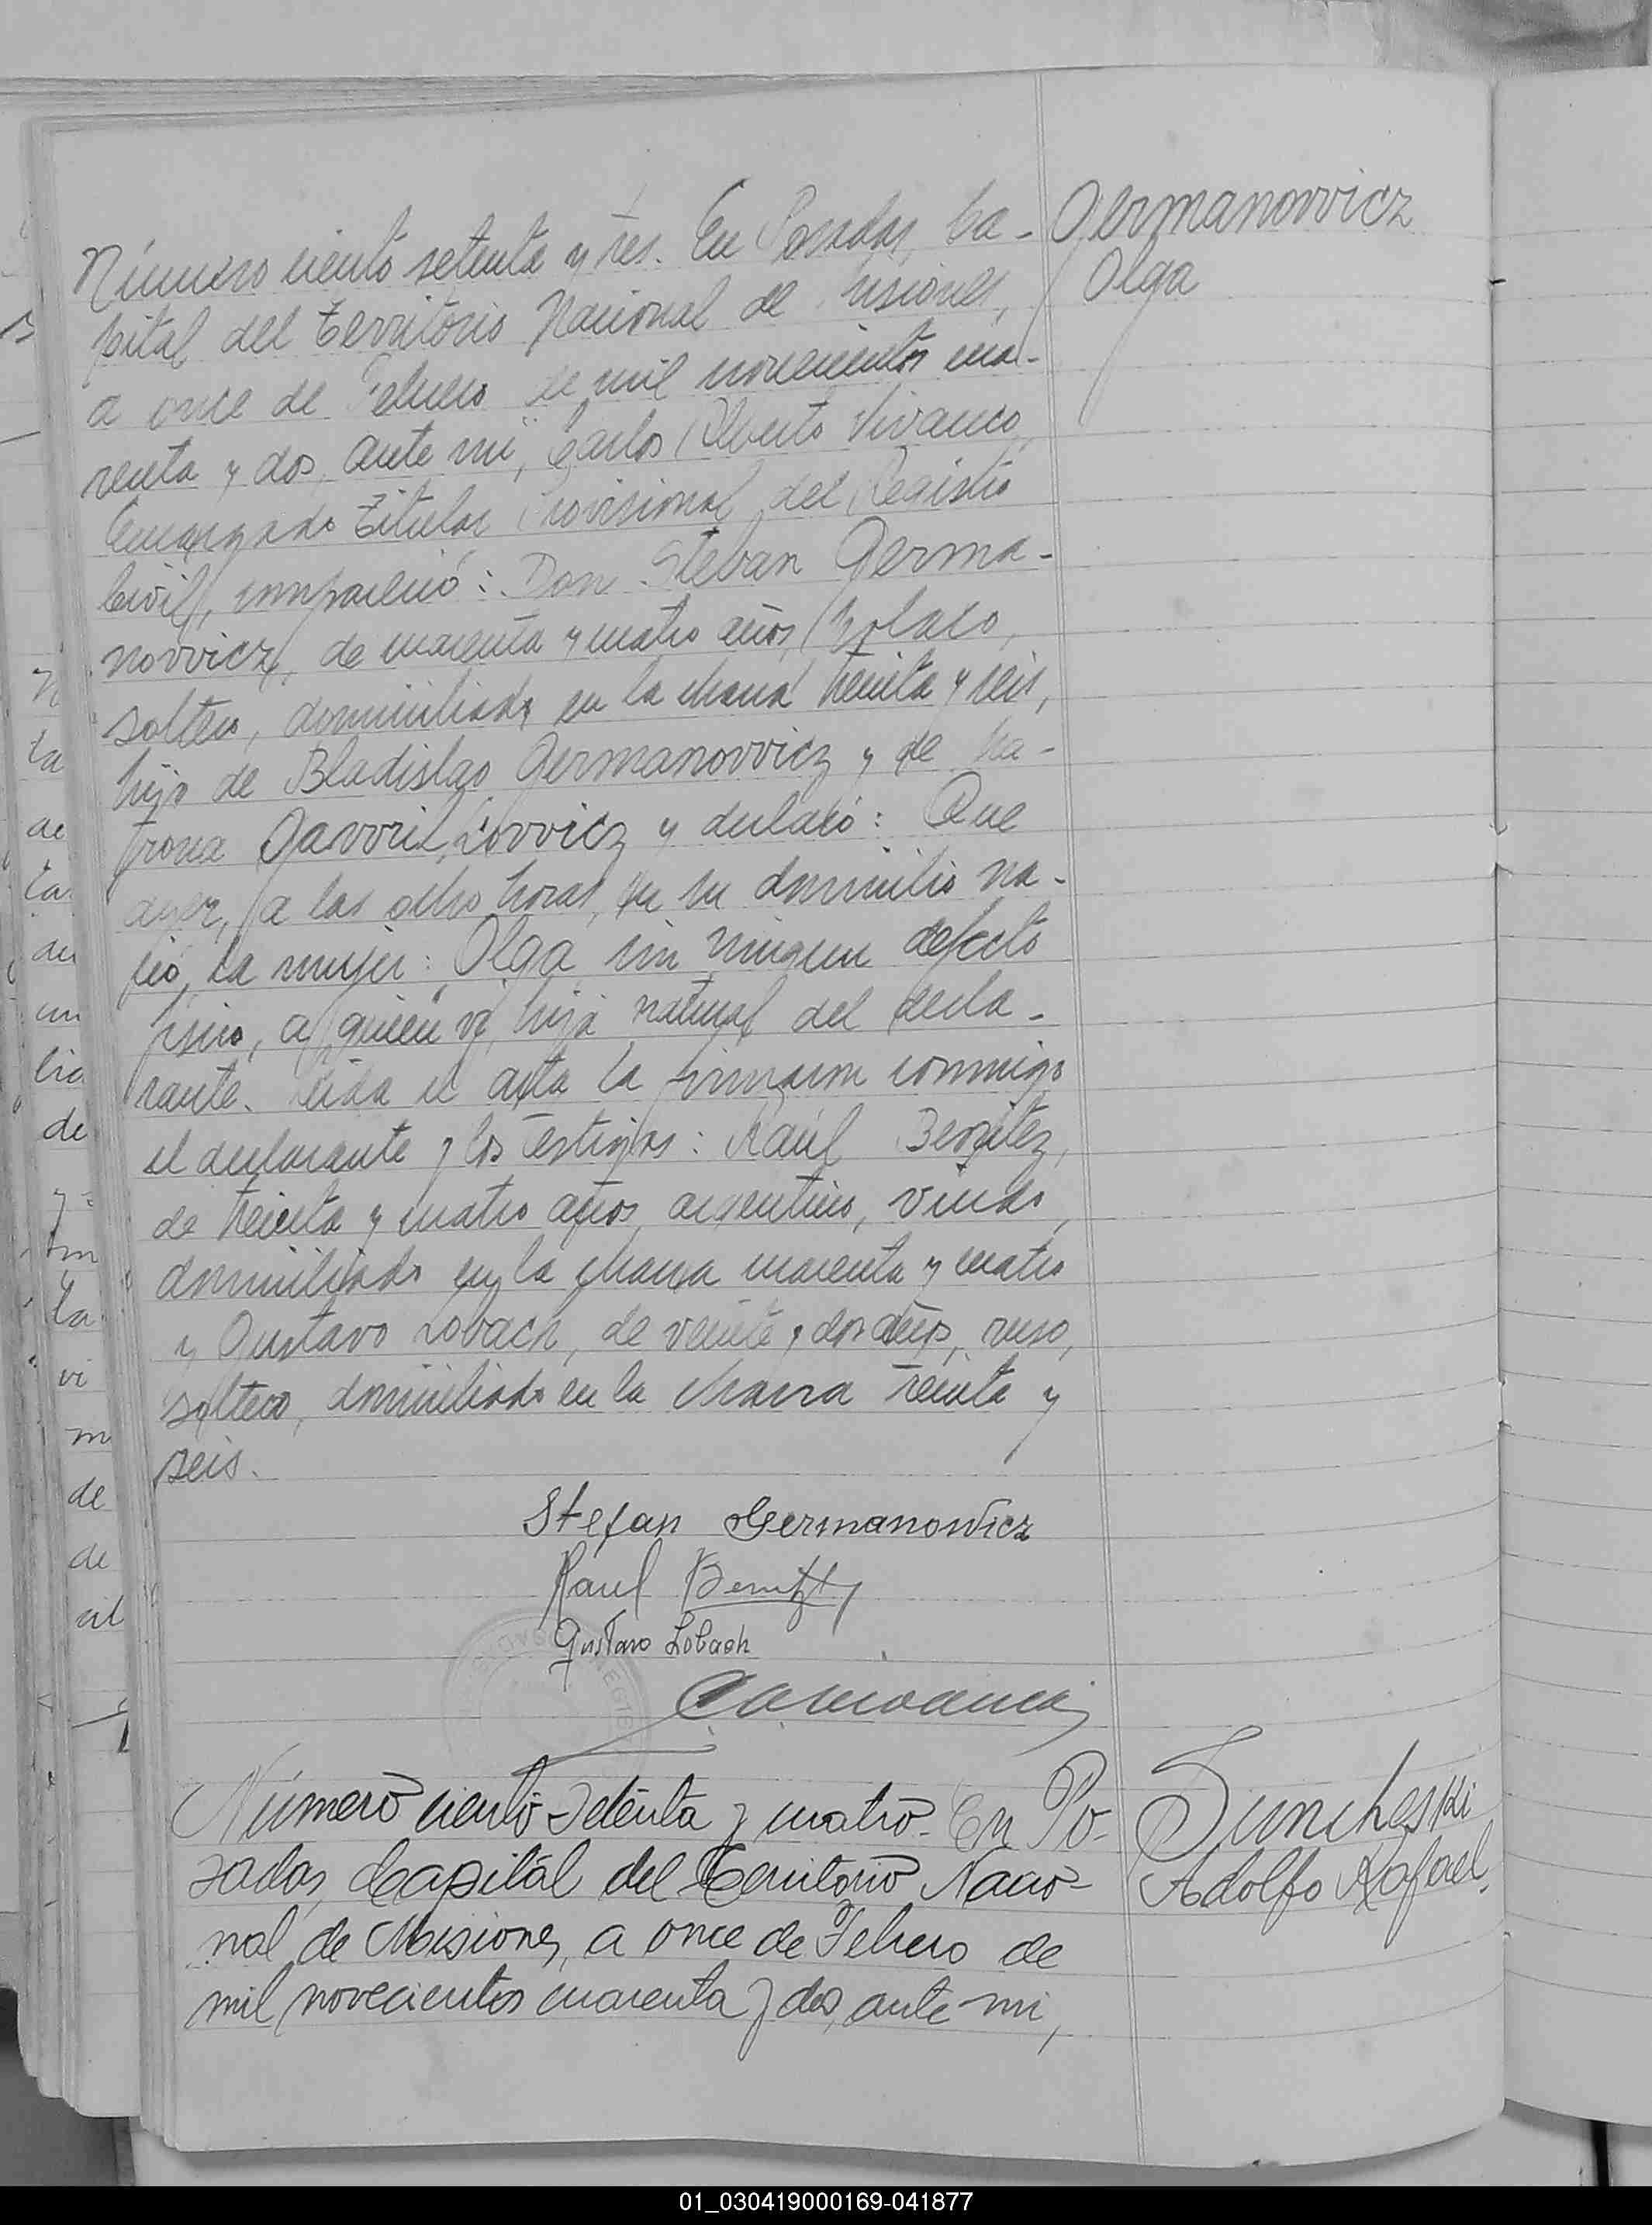 Número ciento setenta y tres. En Posadas, Ca-
Germanovvicz
Olga
pital del Territorio Nacional de Misiones,
a once de Febrero de mil novecientos cua-
renta y dos, ante mi, Carlos Alberto Vivanco,
Encargado Titular Provisional del Registro
Civil, compareció: Don Steban Germa-
novvicz, de cuarenta y cuatro años, polaco,
soltero, domiciliado en la chacra treinta y seis,
hijo de Bladislao Germanovvicz y de Ma-
trona Gavvrilovvicz y declaró: Que
ayer, a las ocho horas, en su domicilio na-
ció la mujer: Olga, sin ningun defecto
fisico, a quien vi, hija natural del decla-
rante. Leida el acta la firmaron conmigo
el declarante y los testigos: Raúl Benitez,
de treinta y cuatro años, argentino, viudo,
domiciliado en la chacra cuarenta y cuatro
y Gustavo Lobach, de veinte y dos años, ruso,
soltero, domiciliado en la chacra treinta y
seis.
Stefan Germanowicz
Raul Benitez
Gustavo Lobach
Número ciento setenta y cuatro. En Po-
Suncheski
Adolfo Rafael.
sadas, Capital del Territorio Nacio-
nal de Misiones, a once de Febrero de
mil novecientos cuarenta y dos, ante mi,
ta
de
ta
au
un
de
ta
vi
m
de
de
al
01_030419000169-041877